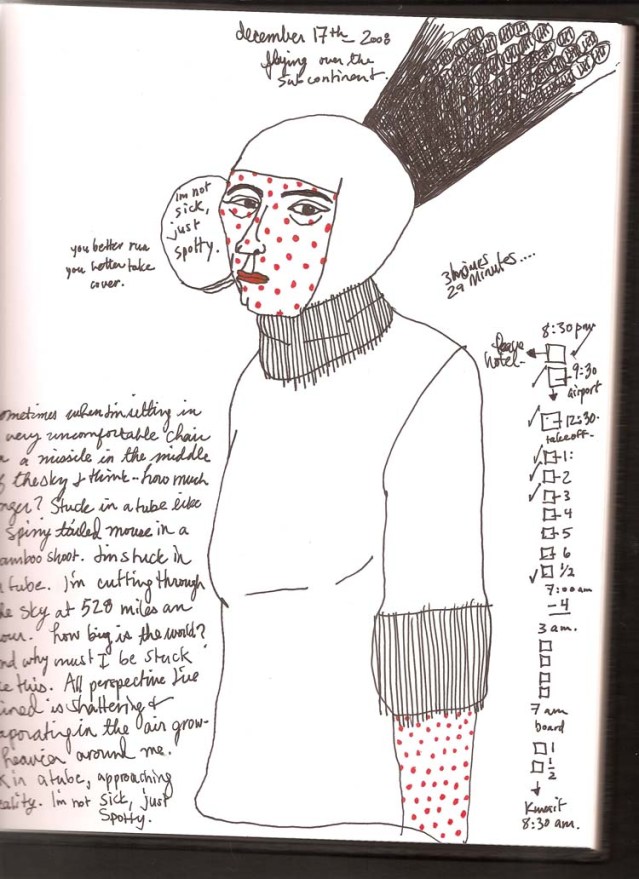 december 17th 2008
flying over the
sub continent.
I'm not
sick,
just
spotty.
you better run
you better take
cover.
29 minutes....
8:30 pm
leave
hotel-
9:30
airport
12:30.
takeoff-
1:
2
3
4
5
6
1/2
7:00 am
-4
3 am.
7 am
board
1
1/2
Kuwait
8:30 am.
ometimes when I'm sitting in
very uncomfortable chair
a missile in the middle
the sky I think -- how much
nger? Stuck in a tube like
spiny tailed mouse in a
amboo shoot. I'm stuck in
tube. I'm cutting through
he sky at 528 miles an
our. how big is the world?
nd why must I be stuck
ke this. All perspective I've
ined is shattering &
aporating in the air grow-
heavier around me.
k in a tube, approaching
eality. I'm not sick, just
Spotty.